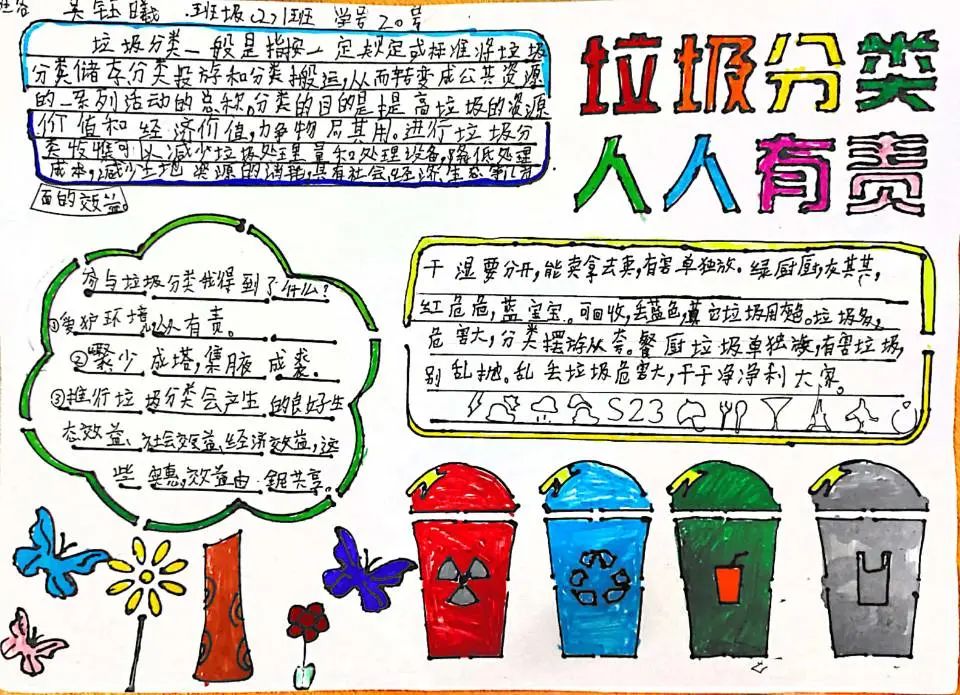 姓名 吴钰曦 班级(2)1班 学号20号
垃圾分类一般是指按一定规定或标准将垃圾
分类储存分类投放和分类搬运,从而转变成公共资源
的一系列活动的总称。分类的目的是提高垃圾的资源
价值和经济价值,力争物尽其用。进行垃圾分
类收集可以减少垃圾处理量和处理设备,降低处理
成本,减少土地资源的消耗,具有社会、经济、生态等几方
面的效益。
垃圾分类
人人有责
参与垃圾分类我得到了什么?
①爱护环境,人人有责。
②聚少成塔,集腋成裘。
③推行垃圾分类会产生的良好生
态效益、社会效益、经济效益,这
些 效益由 共享。
干湿要分开,能卖拿去卖,有害单独放。绿厨厨,灰其其,
红危危,蓝宝宝。可回收,丢蓝色,其它垃圾用 。垃圾多,
危害大,分类摆放从 。餐厨垃圾单独 ,有害垃圾,
别乱抛。乱丢垃圾危害大,干干净净利大家。
S23